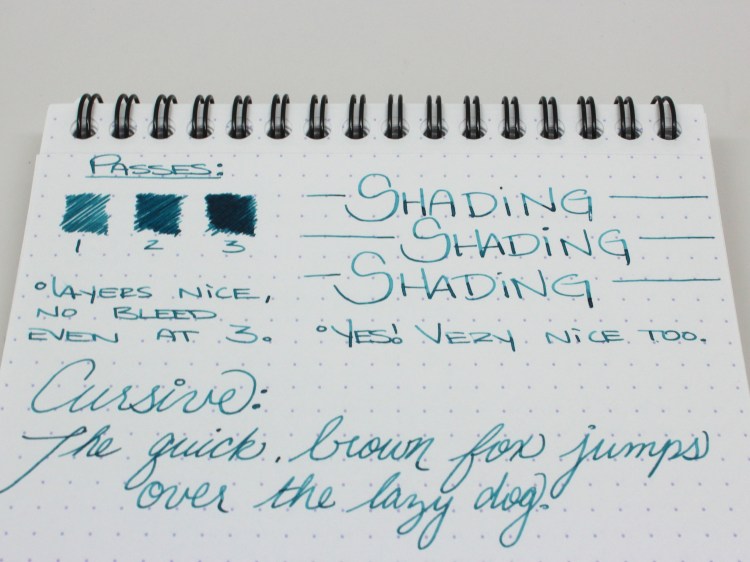 PASSES:
1 2 3
°LAYERS NICE,
NO BLEED
EVEN AT 3.
SHADiNG
SHADiNG
SHADiNG
°YES! VERY NiCE TOO.
Cursive:
The quick, brown fox jumps
over the lazy dog.